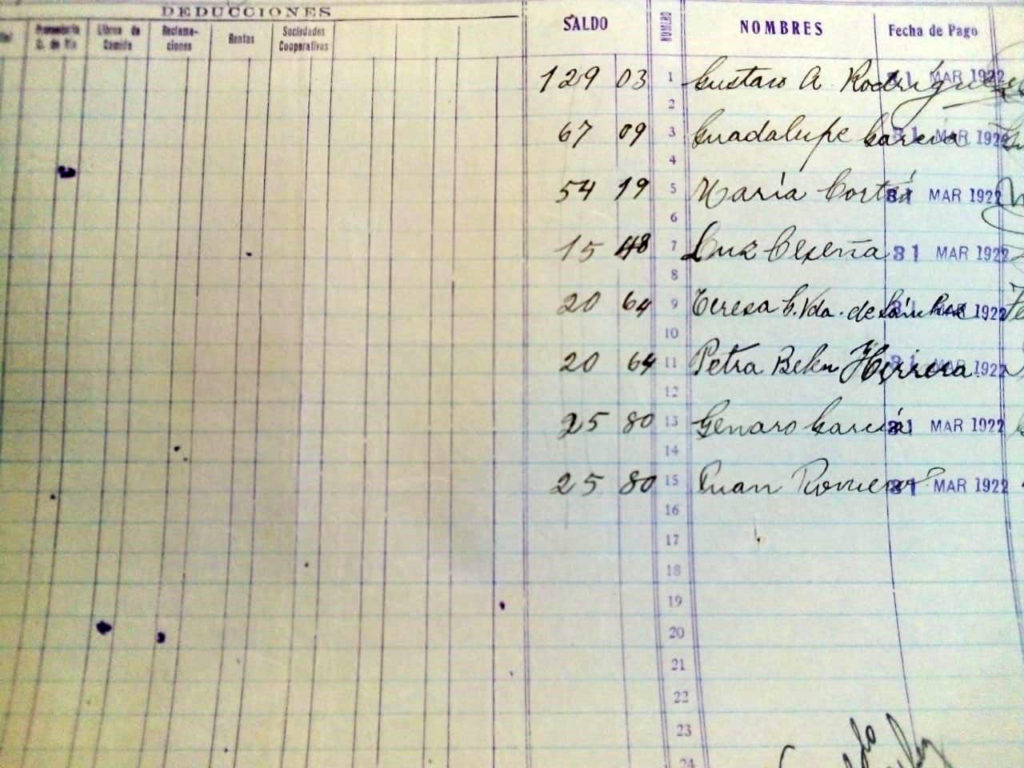 DEDUCCIONES
Libros de Comite
Reclama-ciones
Rentas
Sociedades Cooperativas
SALDO
NUMERO
NOMBRES
Fecha de Pago
129 03 1 Gustavo A Rodríguez 31 MAR 1922
2
67 09 3 Guadalupe Garcia 31 MAR 1922
4
54 19 5 María Cortés 31 MAR 1922
6
15 48 7 Luz Ceseña 31 MAR 1922
8
20 64 9 Teresa C. Vda. de Sánchez 31 MAR 1922
10
20 64 11 Petra Belen Herrera 31 MAR 1922
12
25 80 13 Genaro García 31 MAR 1922
14
25 80 15 Juan Romero 31 MAR 1922
16
17
18
19
20
21
22
23
24